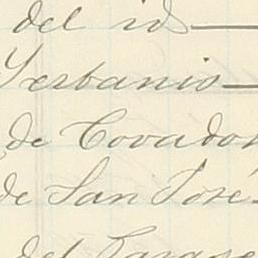 del id
Yerbanis
de Covadon
de San José
del Parage